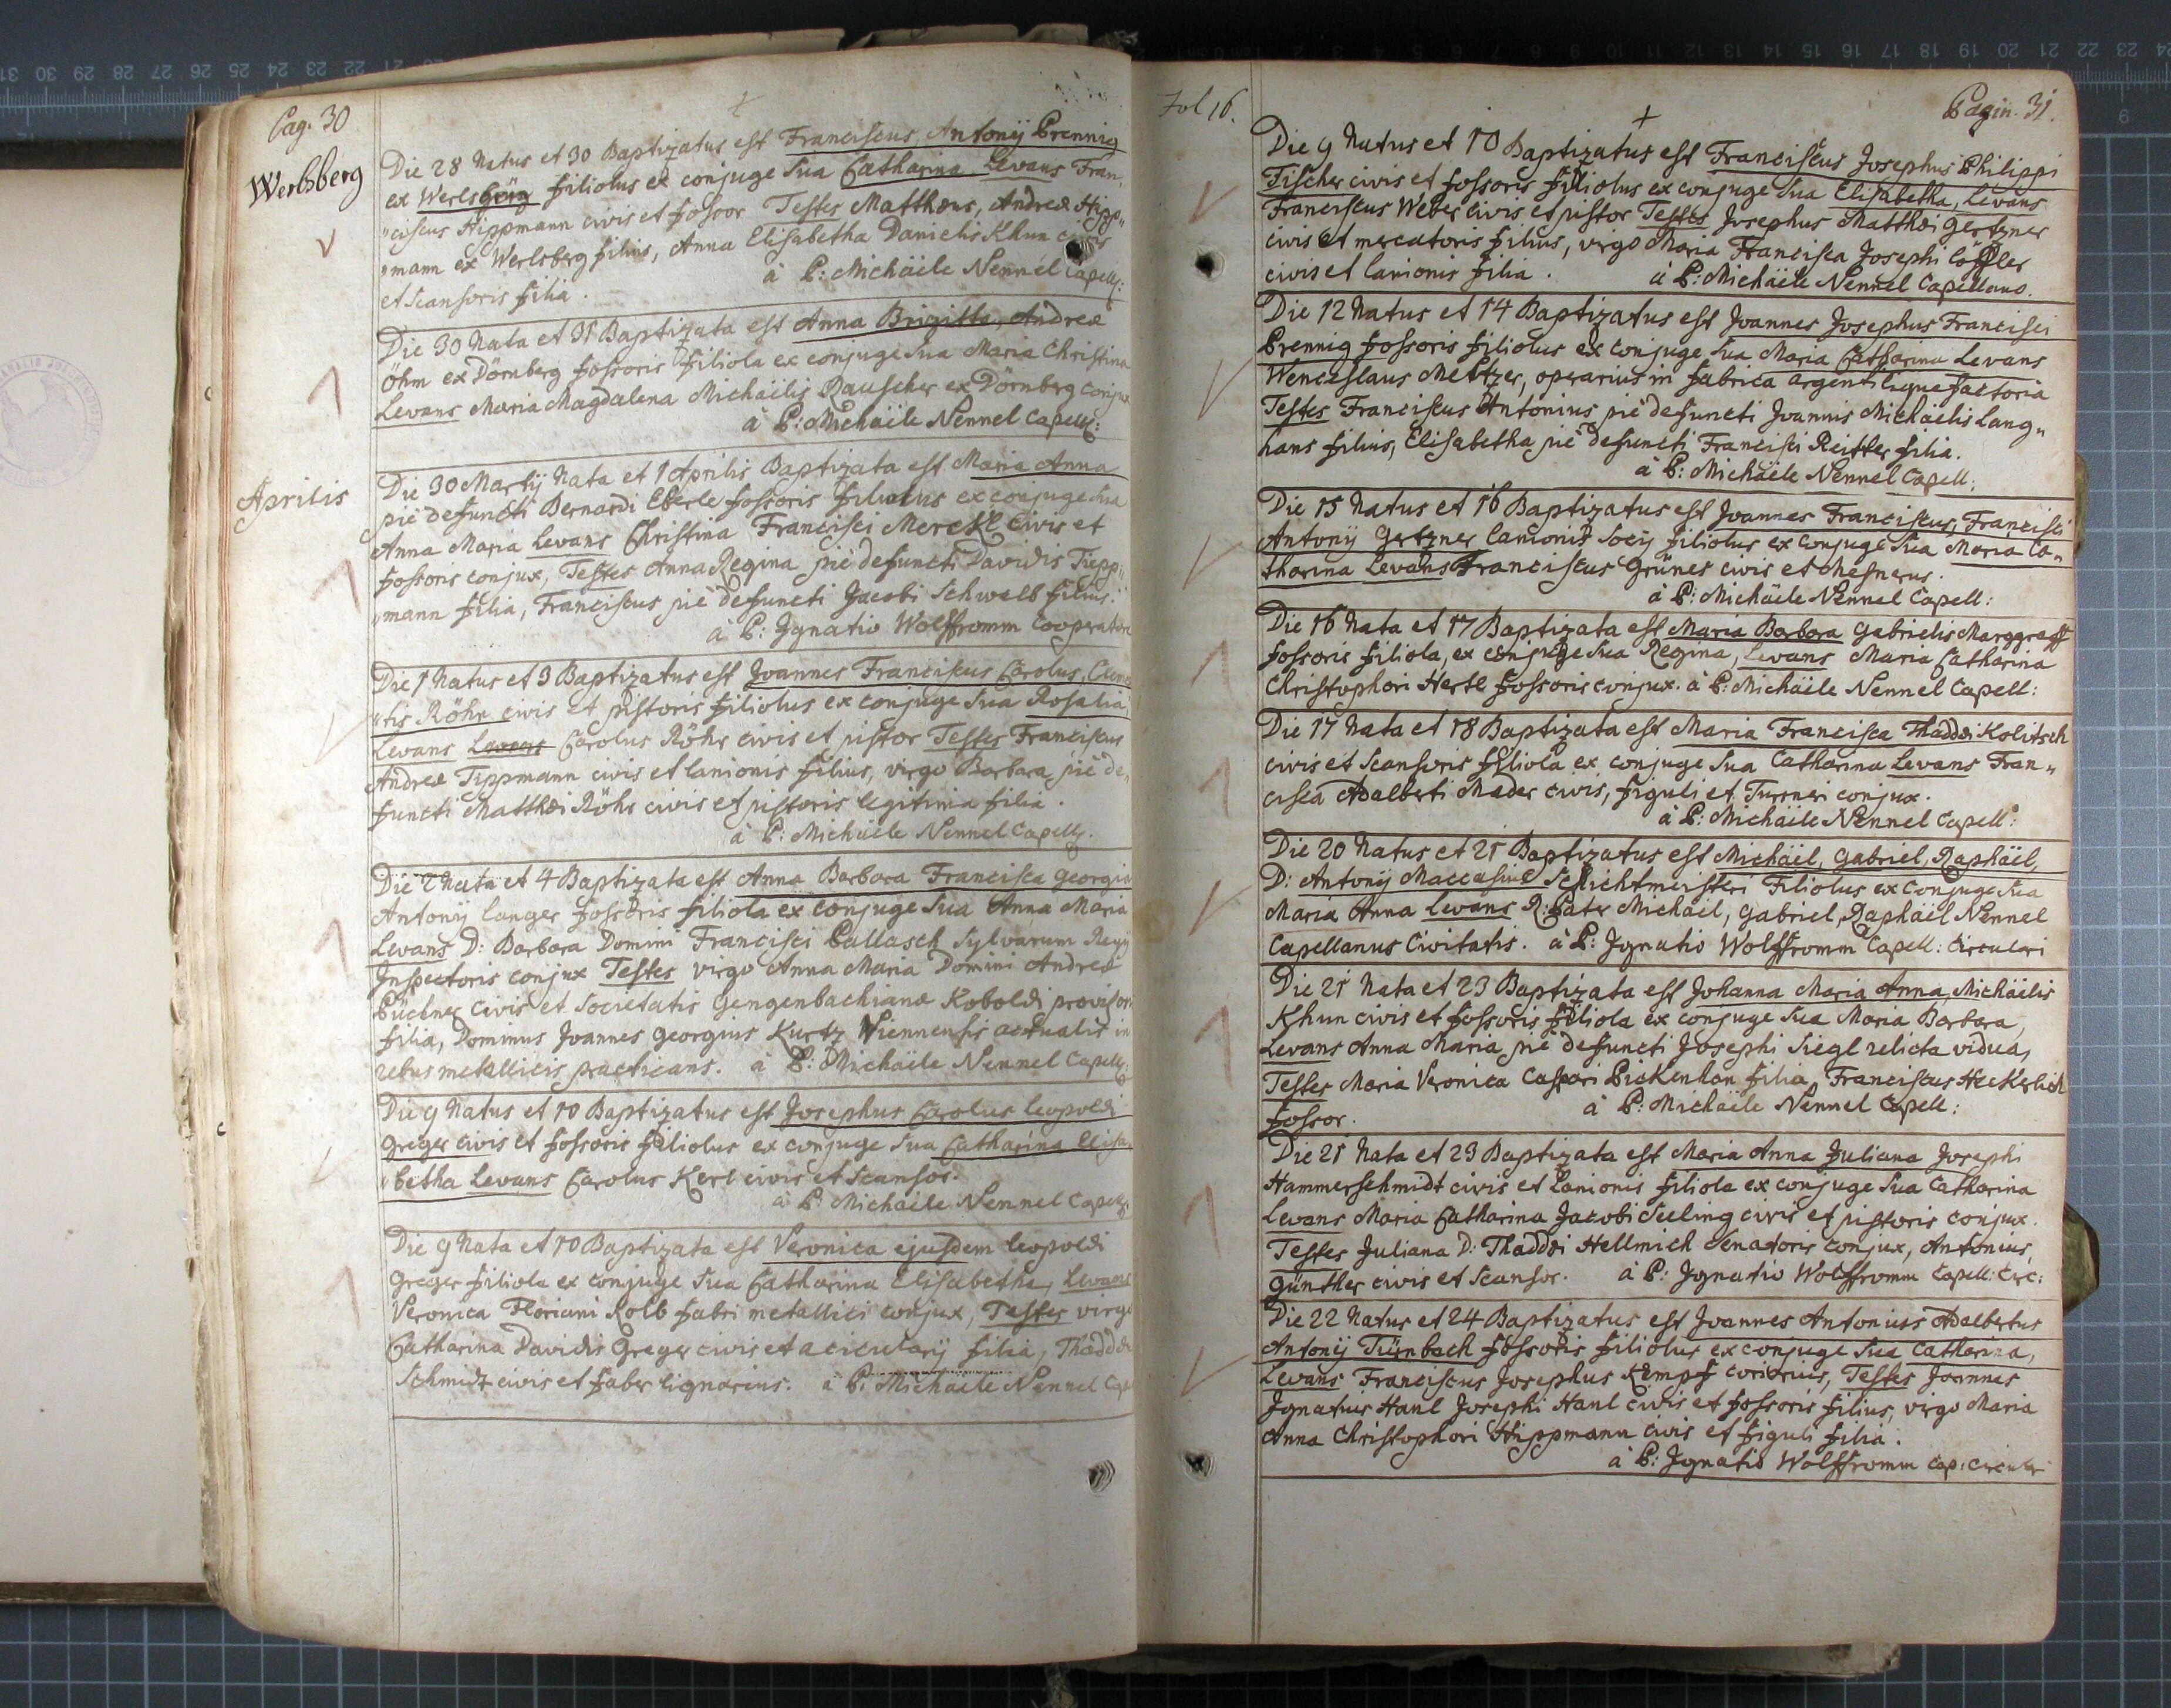 Pag. 30
Werlsberg
Die 28 Natus et 30 Baptizatus est Franciscus, Antonÿ Prennig
ex Werlsberg filiolus ex conjuge sua Catharina Levans Fran,
"ciscus Hippmann civis et fossor Testes Matthæus, Andreæ Hipp"
"mann ex Werlsberg filius, Anna Elisabetha Danielis Khun civis
et scansoris filia.
à P: Michäele Nennel Capell:
Die 30 Nata et 31 Baptizata est Anna Brigitta, Andreæ
Öhm ex Dörnberg fossoris filiola ex conjuge sua Maria Christina
Levans Maria Magdalena Michäelis Rauscher ex Dörnberg conjux
à P: Michäele Nennel Capell:
Aprilis
Die 30 Martÿ Nata et 1 Aprilis Baptizata est Maria Anna
piè defuncti Bernardi Eberle fossoris ex conjuge sua
Anna Maria Levans Christina Francisci Merckl civis et
fossoris conjux, Testes Anna Regina piè defuncti Davidis Tipp"
"mann filia, Franciscus piè defuncti Jacobi Schwalb filius.
à P: Ignatio Wolffromm Cooperatore
Die 1 Natus et 3 Baptizatus est Joannes Franciscus Carolus, Clemen
"tis Röhr civis et pistoris filiolus ex conjuge sua Rosalia,
Levans Levans Carolus Röhr civis et pistor Testes Franciscus
Andreæ Tippmann civis et lanionis filius, virgo Barbara piè de,
functi Matthæi Röhr civis et pistoris legitima filia.
à P: Michäele Nennel Capell.
Die 2 Nata et 4 Baptizata est Anna Barbara Francisca Georgii
Antonÿ Langer fossoris filiola ex conjuge sua Anna Maria
Levans D: Barbara Domini Francisci Pallasch Sylvarum Regÿ
Inspectoris conjux Testes virgo Anna Maria Domini Andreæ
Püchner civis et Societatis Gengenbachianæ Koboldi provisoris
filia, Dominus Joannes Georgius Kurtz Viennensis actualis in
rebus metallicis practicans. à P: Michäele Nennel Capell:
Die 9 Natus et 10 Baptizatus est Josephus Carolus Leopoldi
Greger civis et fossoris filiolus ex conjuge sua Catharina Elisa,
"betha Levans Carolus Kerl civis et scansor.
à P: Michäele Nennel Capell.
Die 9 Nata et 10 Baptizata est Veronica ejusdem Leopoldi
Greger filiola ex conjuge sua Catharina Elisabetha, Levans
Veronica Floriani Kolb fabri metallici conjux, Testes virgo
Catharina Davidis Greger civis et acicularÿ filia, Thaddæus
Schmidt civis et faber lignarius. à P: Michäele Nennel Cap
Fol 16.
Pagin. 31.
Die 9 Natus et 10 Baptizatus est Franciscus Josephus Philippi
Fischer civis et fossoris filiolus ex conjuge sua Elisabetha, Levans
Franciscus Weber civis et pistor Testes Josephus Matthæi Gertzner
civis et mercatoris filius, virgo Maria Francisca Josephi Löffler
civis et lanionis filia. à P: Michäele Nennel Capellano.
Die 12 Natus et 14 Baptizatus est Joannes Josephus Francisci
Prennig fossoris filiolus ex conjuge sua Maria Catharina Levans
Wenceslaus Meltzer, operarius in fabrica argenti liquefactoria
Testes Franciscus Antonius piè defuncti Joannis Michäelis Lang"
hans filius, Elisabetha piè defuncti Francisci Reitter filia.
à P: Michäele Nennel Capell:
Die 15 Natus et 16 Baptizatus est Joannes Franciscus, Francisci
Antonÿ Gertzner lanionis socÿ filiolus ex conjuge sua Maria Ca"
tharina Levans Franciscus Grünes civis et Mesnerus.
à P: Michäele Nennel Capell:
Die 16 Nata et 17 Baptizata est Maria Barbara Gabrielis Marggraff
fossoris filiola, ex conjuge sua Regina, Levans Maria Catharina
Christophori Hertl fossoris conjux. à P: Michäele Nennel Capell:
Die 17 Nata et 18 Baptizata est Maria Francisca Thaddæi Kolitsch
civis et scansoris filiola ex conjuge sua Catharina Levans Fran"
cisca Adalberti Mader civis, figuli et Turneri conjux.
à P: Michäele Nennel Capell:
Die 20 Natus et 21 Baptizatus est Michäel, Gabriel, Raphäel,
D: Antonÿ Maccasius Schichtmeisteri Filiolus ex conjuge sua
Maria Anna Levans R: Pater Michäel, Gabriel, Raphäel Nennel
Capellanus Civitatis. à P: Ignatio Wolffromm Capell: Circulari
Die 21 Nata et 23 Baptizata est Johanna Maria Anna, Michäelis
Khun civis et fossoris filiola ex conjuge sua Maria Barbara,
Levans Anna Maria piè defuncti Josephi Siegl relicta vidua,
Testes Maria Veronica Caspari Pickenhan filia, Franciscus Heckerlich
fossor. à P: Michäele Nennel Capell:
Die 21 Nata et 23 Baptizata est Maria Anna Juliana Josephi
Hammerschmidt civis et Lanionis filiola ex conjuge sua Catharina
Levans Maria Catharina Jacobi Seeling civis et pistoris conjux.
Testes Juliana D: Thaddæi Hellmich Senatoris conjux, Antonius,
Günther civis et scansor. à P: Ignatio Wolffromm Capell: Circ:
Die 22 Natus et 24 Baptizatus est Joannes Antonius Adalbertus
Antonÿ Türnbach fossoris filiolus ex conjuge sua Catharina,
Levans Franciscus Josephus Kempf coriarius, Testes Joannes
Ignatius Hanl Josephi Hanl civis et fossoris filius, virgo Maria
Anna Christophori Hippmann civis et figuli filia.
à P: Ignatio Wolffromm Cap: Circular